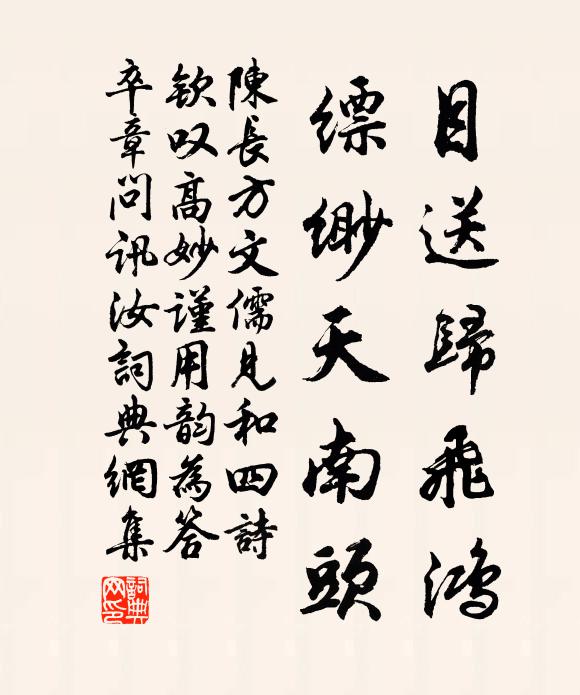 目送歸飛鴻
縹緲天南頭
陳長方文儒見和四詩
欽叹高妙謹用韵為答
卒章問訊汝詞典網集
詞典网印